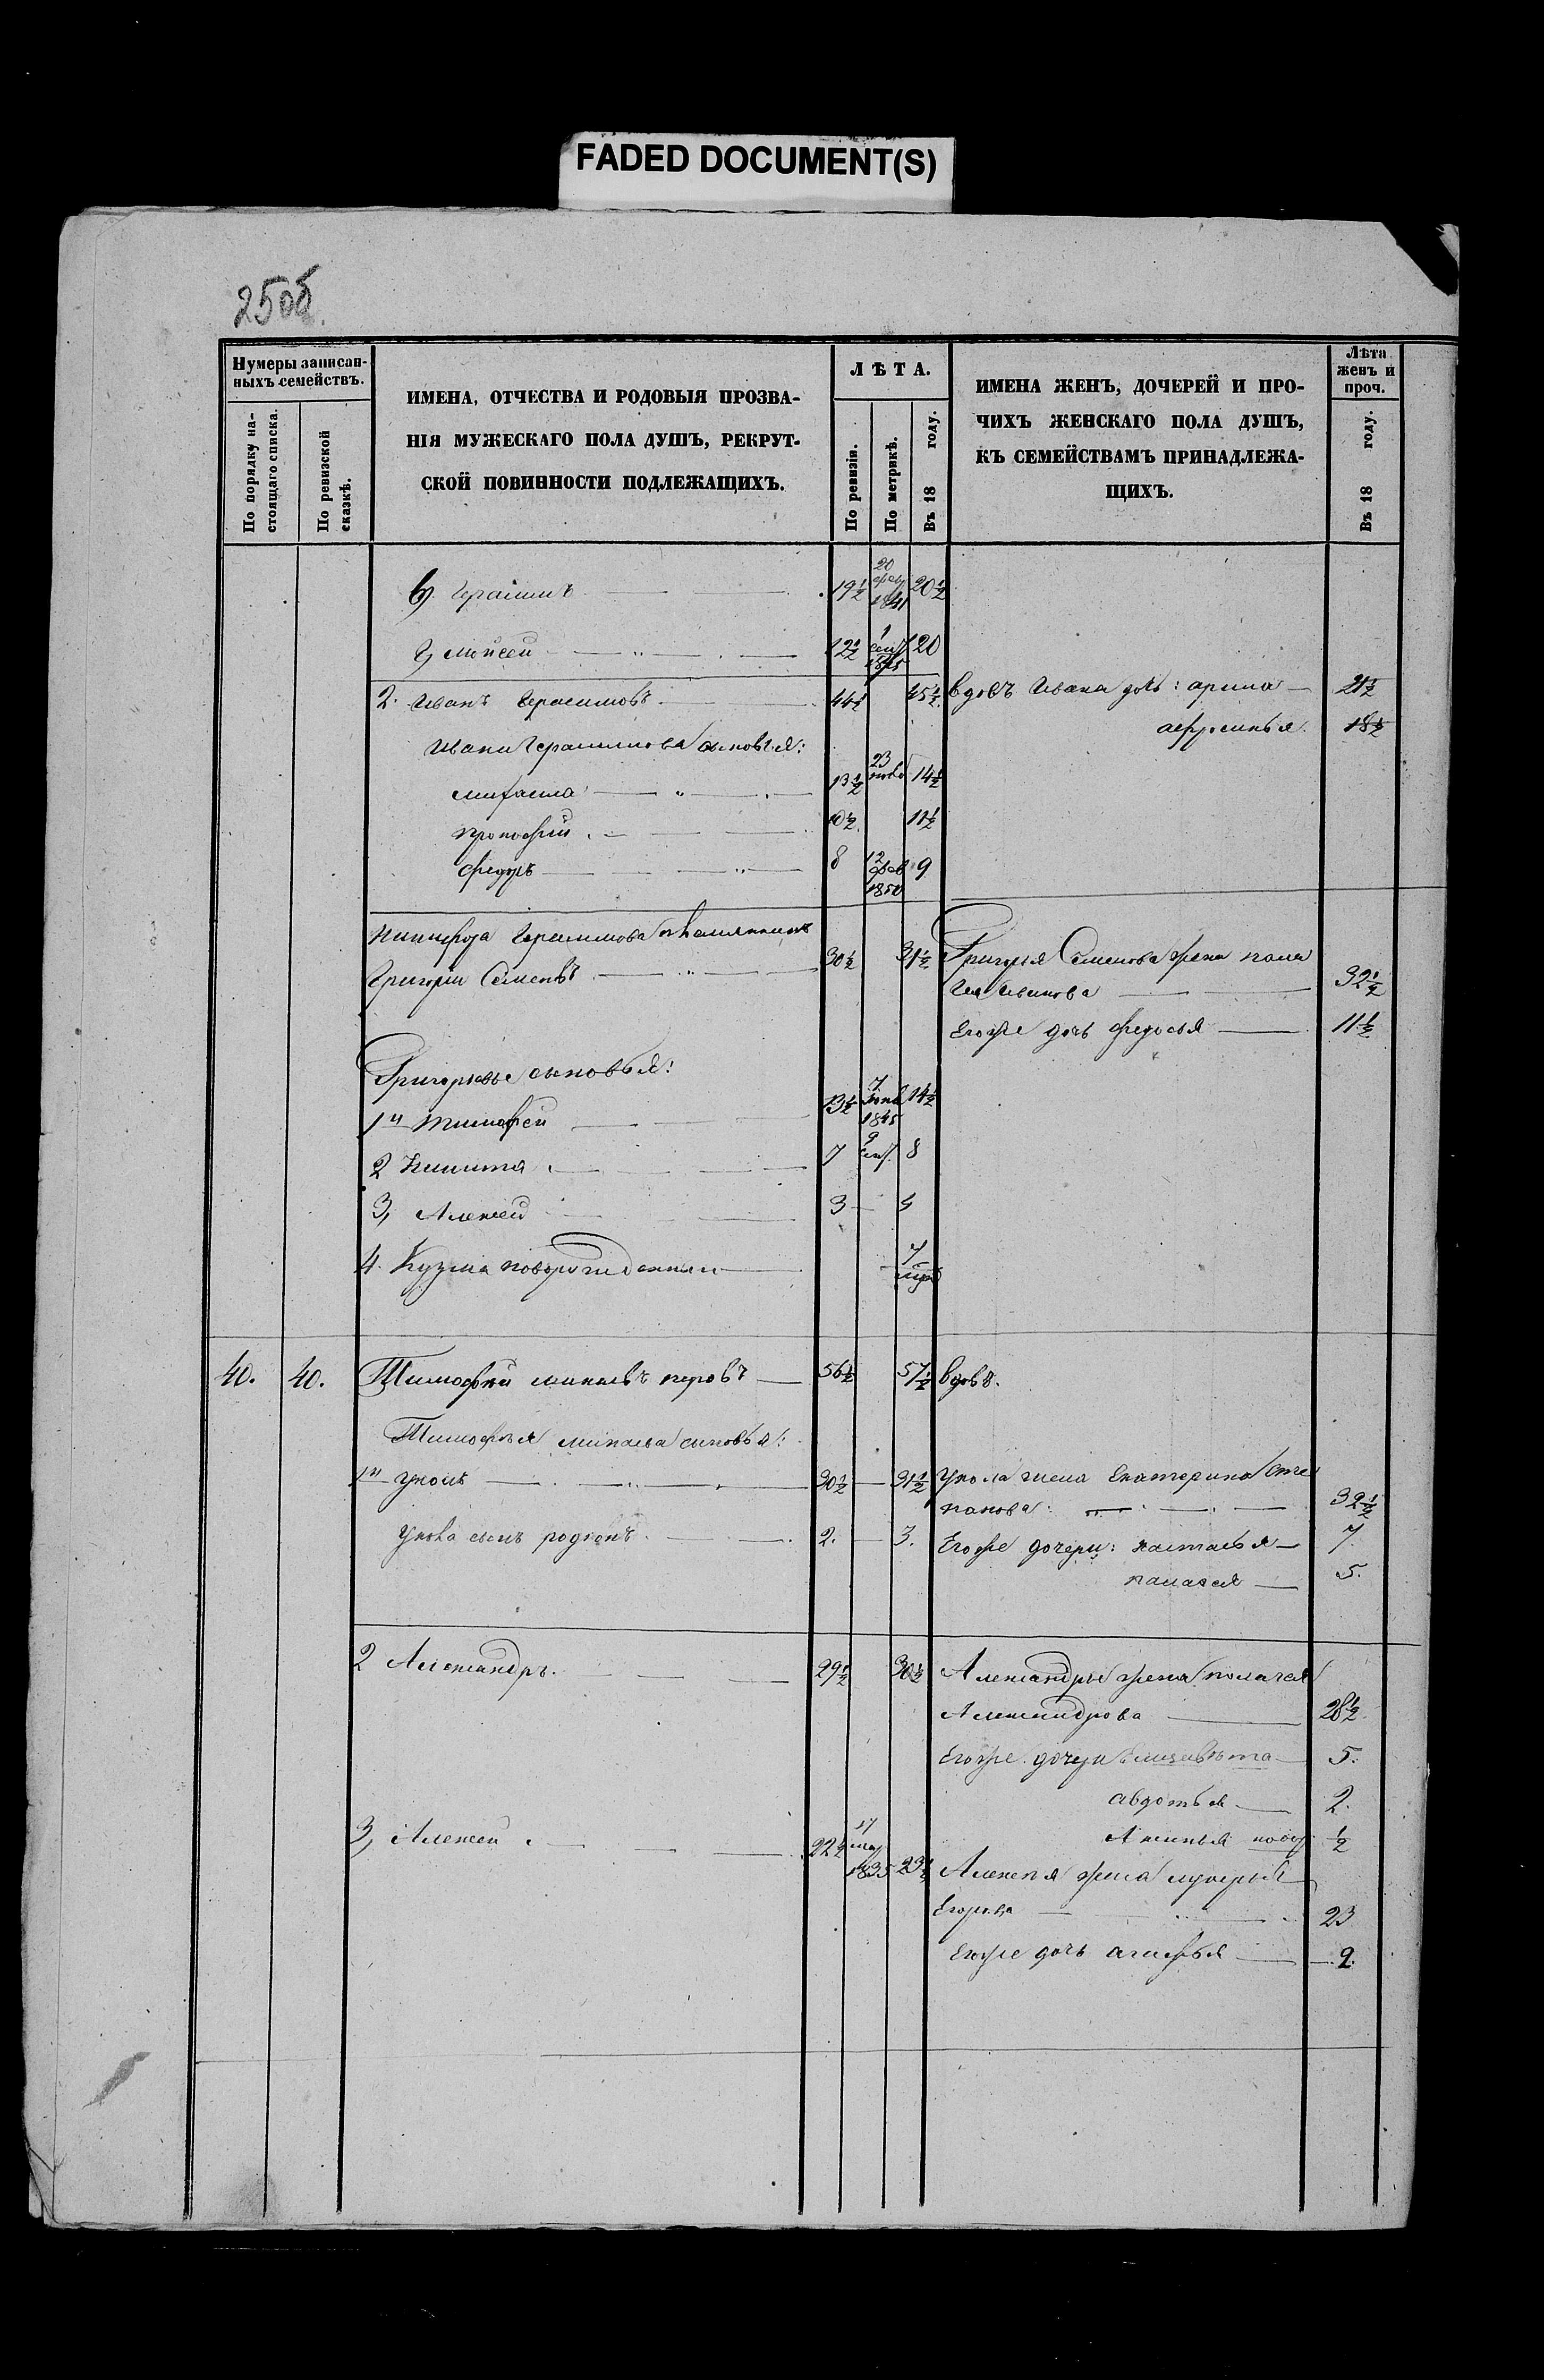 FADED DOCUMENT(S)
250б.
Нумеры записан-
ныхъ семействъ.
По порядку на-
стоящаго списка.
По ревизской
сказкѣ.
ИМЕНА, ОТЧЕСТВА И РОДОВЫЯ ПРОЗВА-
НІЯ МУЖЕСКАГО ПОЛА ДУШЪ, РЕКРУТ-
СКОЙ ПОВИННОСТИ ПОДЛЕЖАЩИХЪ.
ЛѢТА.
По ревизіи.
По метрикѣ.
Въ 18 году.
ИМЕНА ЖЕНЪ, ДОЧЕРЕЙ И ПРО-
ЧИХЪ ЖЕНСКАГО ПОЛА ДУШЪ,
КЪ СЕМЕЙСТВАМЪ ПРИНАДЛЕЖА-
ЩИХЪ.
Лѣта
женъ и
проч.
Въ 18 году.
19½ 20 1841 20½
моисеи 12½ 1 сен 1845 20
2. Иванъ Герасимовъ 44½ 45½ вдовъ Ивана доч: арина 21½
афросинья 18½
Ивана Герасимова сыновья:
михаила 13½ 23 нояб 14½
прокофий 10½ 11½
федоръ 8 12 фев 1850 9
Никифора Герасимова племянникъ
Григории Семенвъ 30½ 31½ Григорья Семенова жена пела
гия Иванова 32½
Егоже дочь федосья 11½
Григорьевы сыновья:
1й тимофеи 13½ 7 1845 14½
2 Никита 7 9 сен 8
3, Алексеи 3 4
4. Кузма новорожденныи 7
40. 40. Тимофеи минаевъ перовъ 56½ 57½ вдовъ.
Тимофея минаева сыновья:
1й 30½ 31½ жена Екатерина сте
панова: 32½
сынъ родионъ 2. 3. Егоже дочери: настасья 7.
палагея 5.
2 Александръ. 29½ 30½ Александры жена полагея
Александрова 28½
Егоже дочери Елизавѣта 5.
авдотья 2.
Аксинья новор ½
3, Алексеи 22½ 17 мар 1835 23½ Алексѣя жена лукерья
Егорова 23
Егоже дочь агафья 2.